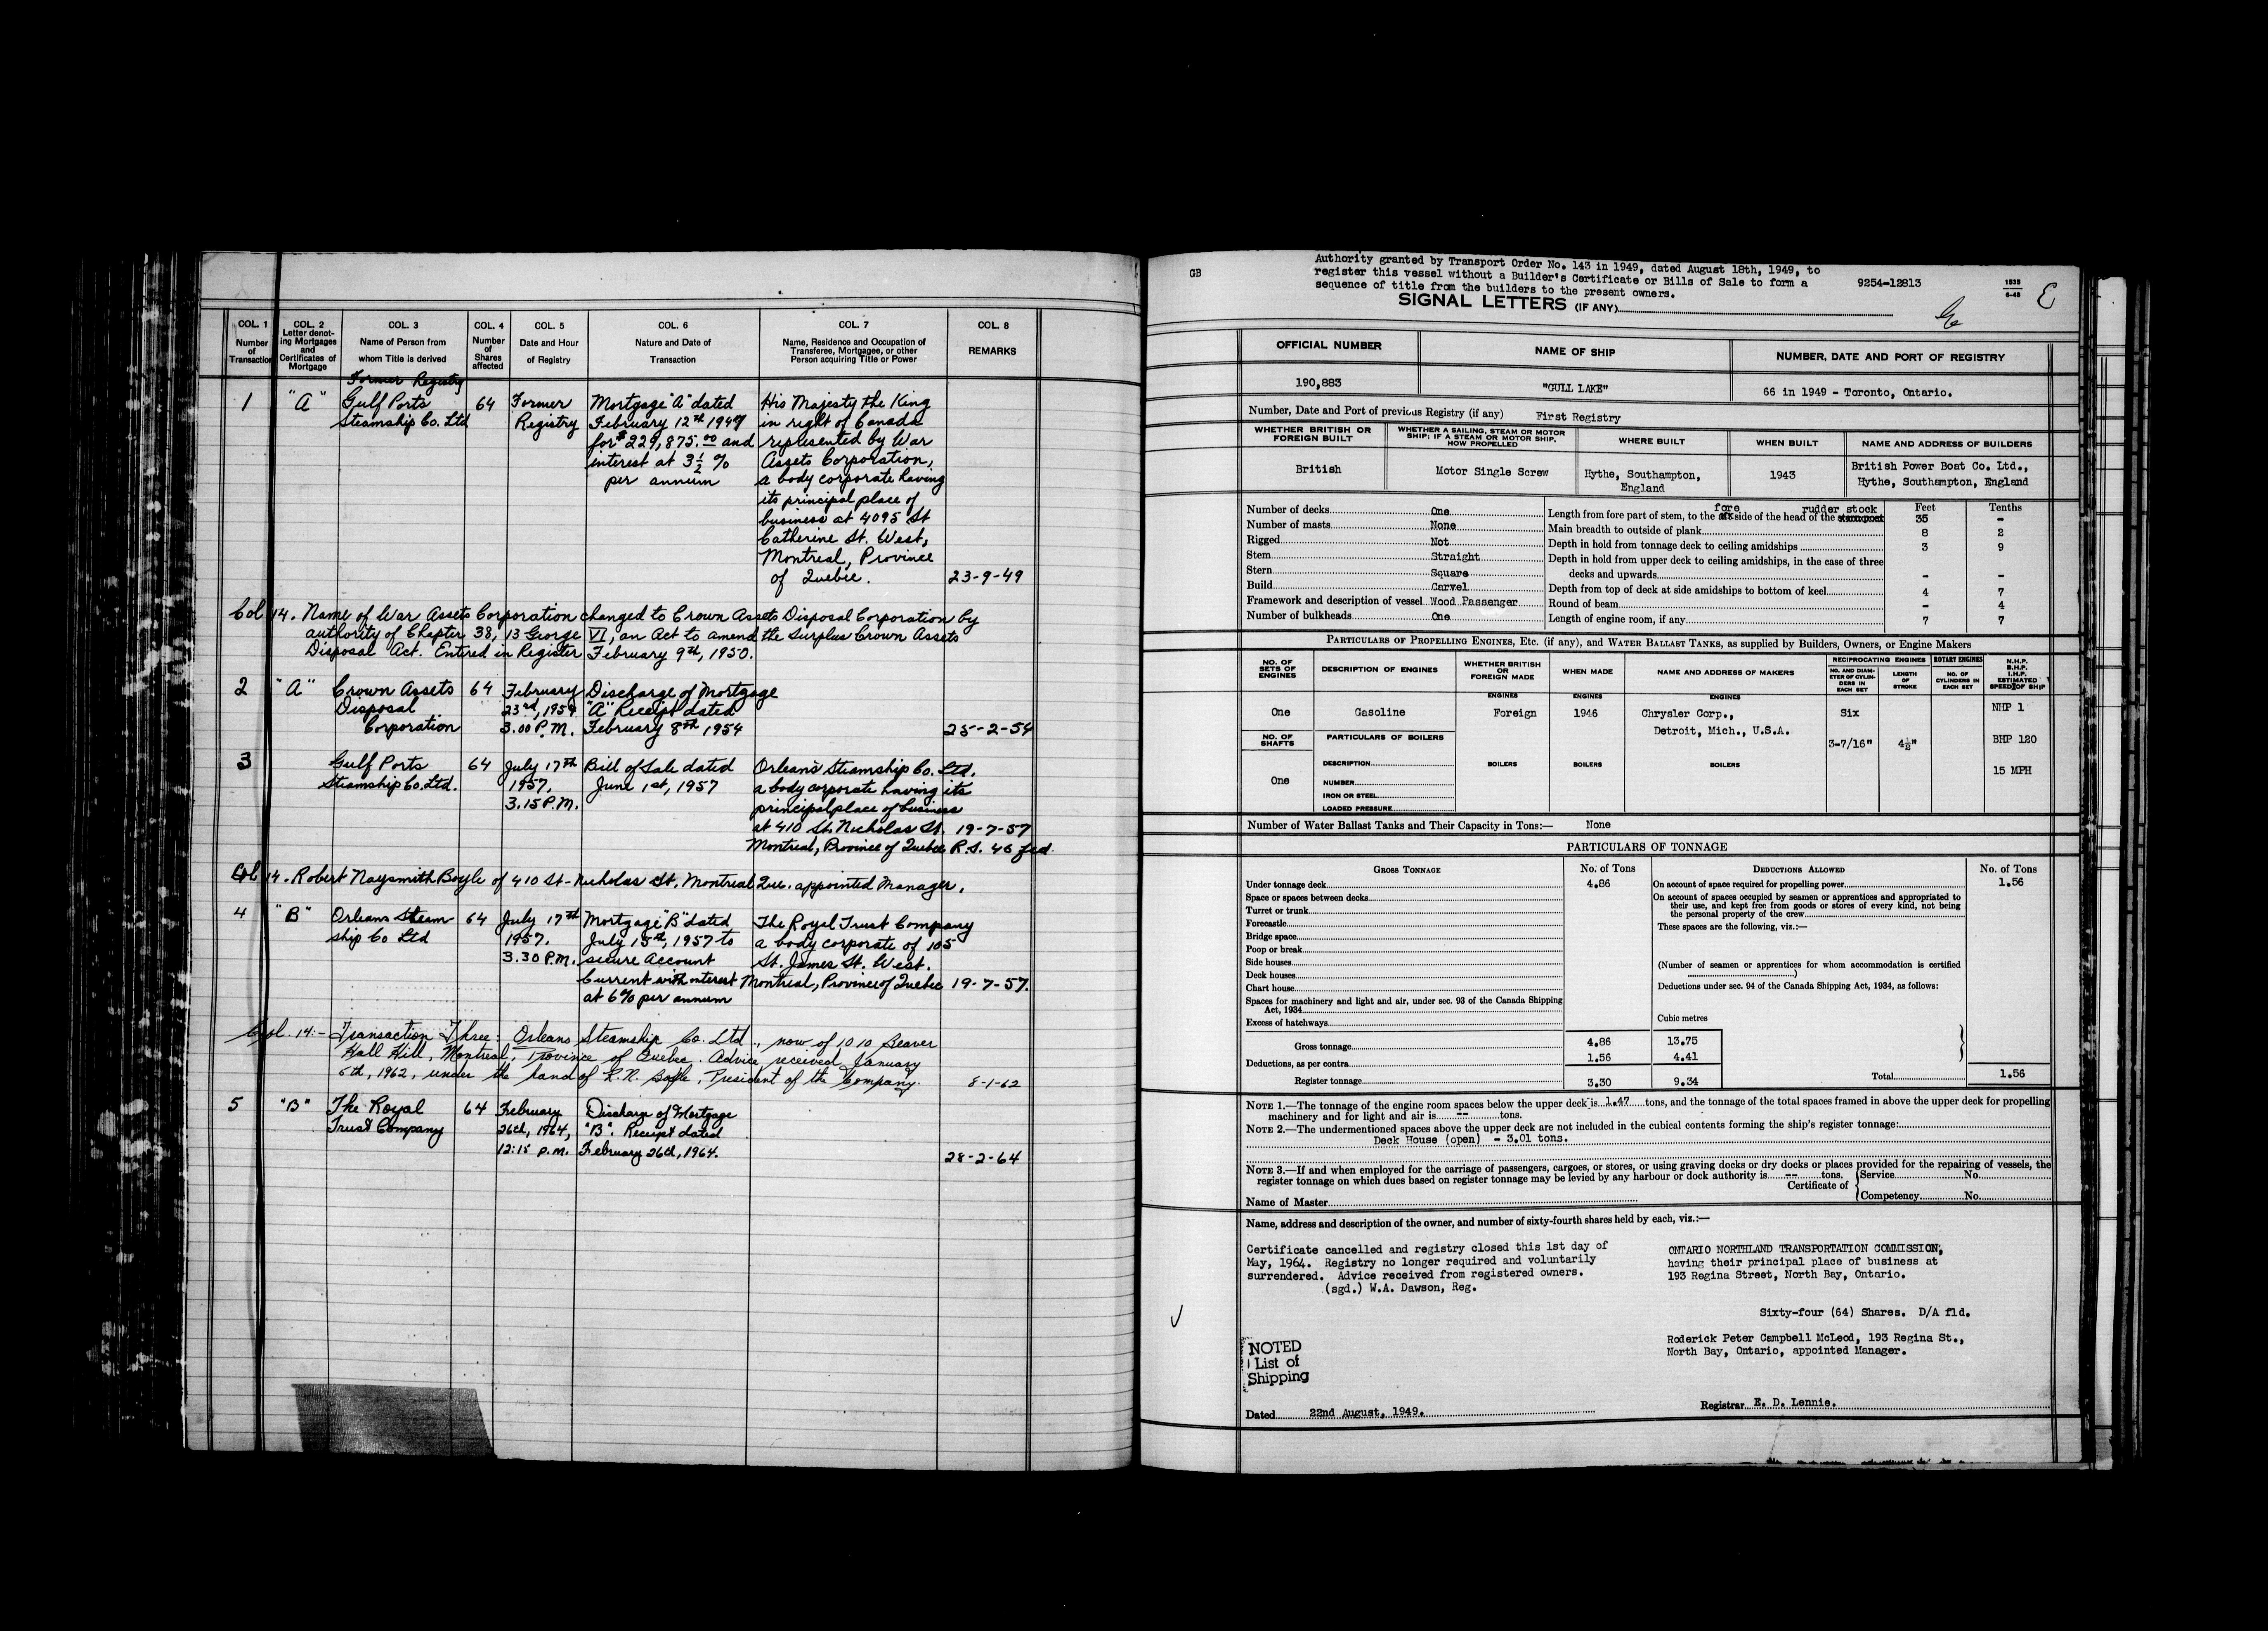 COL. 1
Number
of
Transaction
COL. 2
Letter denot-
ing Mortgages
and
Certificates of
Mortgage
COL. 3
Name of Person from
whom Title is derived
COL. 4
Number
of
Shares
affected
COL. 5
Date and Hour
of Registry
COL. 6
Nature and Date of
Transaction
COL. 7
Name, Residence and Occupation of
Transferee, Mortgagee, or other
Person acquiring Title or Power
COL. 8
REMARKS
Former Registry
1 "A" Gulf Ports 64 Former Mortgage "A" dated His Majesty the King
Steamship Co. Ltd Registry February 12th 1947 in right of Canada
for $229,875.00 and represented by War
interest at 3 1/2 % Assets Corporation,
per annum a body corporate having
its principal place of
business at 4095 St
Catherine St. West,
Montreal, Province
of Quebec. 23-9-49
Col 14. Name of War Assets Corporation changed to Crown Assets Disposal Corporation by
authority of Chapter 38, 13 George VI, an Act to amend the Surplus Crown Assets
Disposal Act. Entered in Register February 9th, 1950.
2 "A" Crown Assets 64 February Discharge of Mortgage
Disposal 23rd, 1954 "A" Receipt dated
Corporation 3.00 P.M. February 8th 1954 25-2-54
3 Gulf Ports 64 July 17th Bill of Sale dated Orleans Steamship Co. Ltd.
Steamship Co. Ltd. 1957. June 1st, 1957 a body corporate having its
3.15 P.M. principal place of business
at 410 St. Nicholas St. 19-7-57
Montreal, Province of Quebec R.S. 46 fed.
Col 14. Robert Naysmith Boyle of 410 St-Nicholas St. Montreal Que. appointed Manager.
4 "B" Orleans Steam 64 July 17th Mortgage "B" dated The Royal Trust Company
ship Co Ltd 1957. July 15th, 1957 to a body corporate of 105
3.30 P.M. secure Account St. James St. West.
Current with interest Montreal, Province of Quebec 19-7-57.
at 6% per annum
Col. 14:- Transaction Three: Orleans Steamship Co. Ltd., now of 1010 Beaver
Hall Hill, Montreal, Province of Quebec. Advice received January
5th, 1962, under the hand of R.N. Boyle, President of the Company. 8-1-62
5 "B" The Royal 64 February Discharge of Mortgage
Trust Company 26th, 1964, "B". Receipt dated
12:15 p.m. February 26th, 1964. 28-2-64
GB
Authority granted by Transport Order No. 143 in 1949, dated August 18th, 1949, to
register this vessel without a Builder's Certificate or Bills of Sale to form a
sequence of title from the builders to the present owners.
9254-12813
1535
6-48
SIGNAL LETTERS (IF ANY)
OFFICIAL NUMBER NAME OF SHIP NUMBER, DATE AND PORT OF REGISTRY
190,883 "GULL LAKE" 66 in 1949 - Toronto, Ontario.
Number, Date and Port of previous Registry (if any) First Registry
WHETHER BRITISH OR
FOREIGN BUILT
WHETHER A SAILING, STEAM OR MOTOR
SHIP; IF A STEAM OR MOTOR SHIP,
HOW PROPELLED
WHERE BUILT
WHEN BUILT
NAME AND ADDRESS OF BUILDERS
British Motor Single Screw Hythe, Southampton, 1943 British Power Boat Co. Ltd.,
England Hythe, Southampton, England
Number of decks One
Number of masts None
Rigged Not
Stem Straight
Stern Square
Build Carvel
Framework and description of vessel Wood Passenger
Number of bulkheads One
Feet Tenths
fore rudder stock
Length from fore part of stem, to the aft side of the head of the sternpost 35 -
Main breadth to outside of plank 8 2
Depth in hold from tonnage deck to ceiling amidships 3 9
Depth in hold from upper deck to ceiling amidships, in the case of three
decks and upwards - -
Depth from top of deck at side amidships to bottom of keel 4 7
Round of beam - 4
Length of engine room, if any 7 7
PARTICULARS OF PROPELLING ENGINES, ETC. (if any), and WATER BALLAST TANKS, as supplied by Builders, Owners, or Engine Makers
NO. OF
SETS OF
ENGINES
DESCRIPTION OF ENGINES
WHETHER BRITISH
OR
FOREIGN MADE
WHEN MADE
NAME AND ADDRESS OF MAKERS
RECIPROCATING ENGINES
NO. AND DIAM-
ETER OF CYLIN-
DERS IN
EACH SET
LENGTH
OF
STROKE
ROTARY ENGINES
NO. OF
CYLINDERS IN
EACH SET
N.H.P.
B.H.P.
I.H.P.
ESTIMATED
SPEED OF SHIP
ENGINES ENGINES ENGINES
One Gasoline Foreign 1946 Chrysler Corp., Six NHP 1
Detroit, Mich., U.S.A.
3-7/16" 4½" BHP 120
15 MPH
NO. OF
SHAFTS
PARTICULARS OF BOILERS
One
DESCRIPTION BOILERS BOILERS BOILERS
NUMBER
IRON OR STEEL
LOADED PRESSURE
Number of Water Ballast Tanks and Their Capacity in Tons:— None
PARTICULARS OF TONNAGE
GROSS TONNAGE No. of Tons DEDUCTIONS ALLOWED No. of Tons
Under tonnage deck 4.86
Space or spaces between decks
Turret or trunk
Forecastle
Bridge space
Poop or break
Side houses
Deck houses
Chart house
Spaces for machinery and light and air, under sec. 93 of the Canada Shipping
Act, 1934
Excess of hatchways
Cubic metres
Gross tonnage 4.86 13.75
Deductions, as per contra 1.56 4.41
Register tonnage 3.30 9.34
On account of space required for propelling power 1.56
On account of spaces occupied by seamen or apprentices and appropriated to
their use, and kept free from goods or stores of every kind, not being
the personal property of the crew
These spaces are the following, viz.:—
(Number of seamen or apprentices for whom accommodation is certified
)
Deductions under sec. 94 of the Canada Shipping Act, 1934, as follows:
Total 1.56
NOTE 1.—The tonnage of the engine room spaces below the upper deck is 1.47 tons, and the tonnage of the total spaces framed in above the upper deck for propelling
machinery and for light and air is -- tons.
NOTE 2.—The undermentioned spaces above the upper deck are not included in the cubical contents forming the ship's register tonnage:
Deck House (open) - 3.01 tons.
NOTE 3.—If and when employed for the carriage of passengers, cargoes, or stores, or using graving docks or dry docks or places provided for the repairing of vessels, the
register tonnage on which dues based on register tonnage may be levied by any harbour or dock authority is -- tons.
Certificate of
Service No.
Competency No.
Name of Master
Name, address and description of the owner, and number of sixty-fourth shares held by each, viz.:—
Certificate cancelled and registry closed this 1st day of
May, 1964. Registry no longer required and voluntarily
surrendered. Advice received from registered owners.
(sgd.) W.A. Dawson, Reg.
ONTARIO NORTHLAND TRANSPORTATION COMMISSION,
having their principal place of business at
193 Regina Street, North Bay, Ontario.
Sixty-four (64) Shares. D/A fld.
Roderick Peter Campbell McLeod, 193 Regina St.,
North Bay, Ontario, appointed Manager.
NOTED
List of
Shipping
Dated 22nd August, 1949.
Registrar E. D. Lennie.